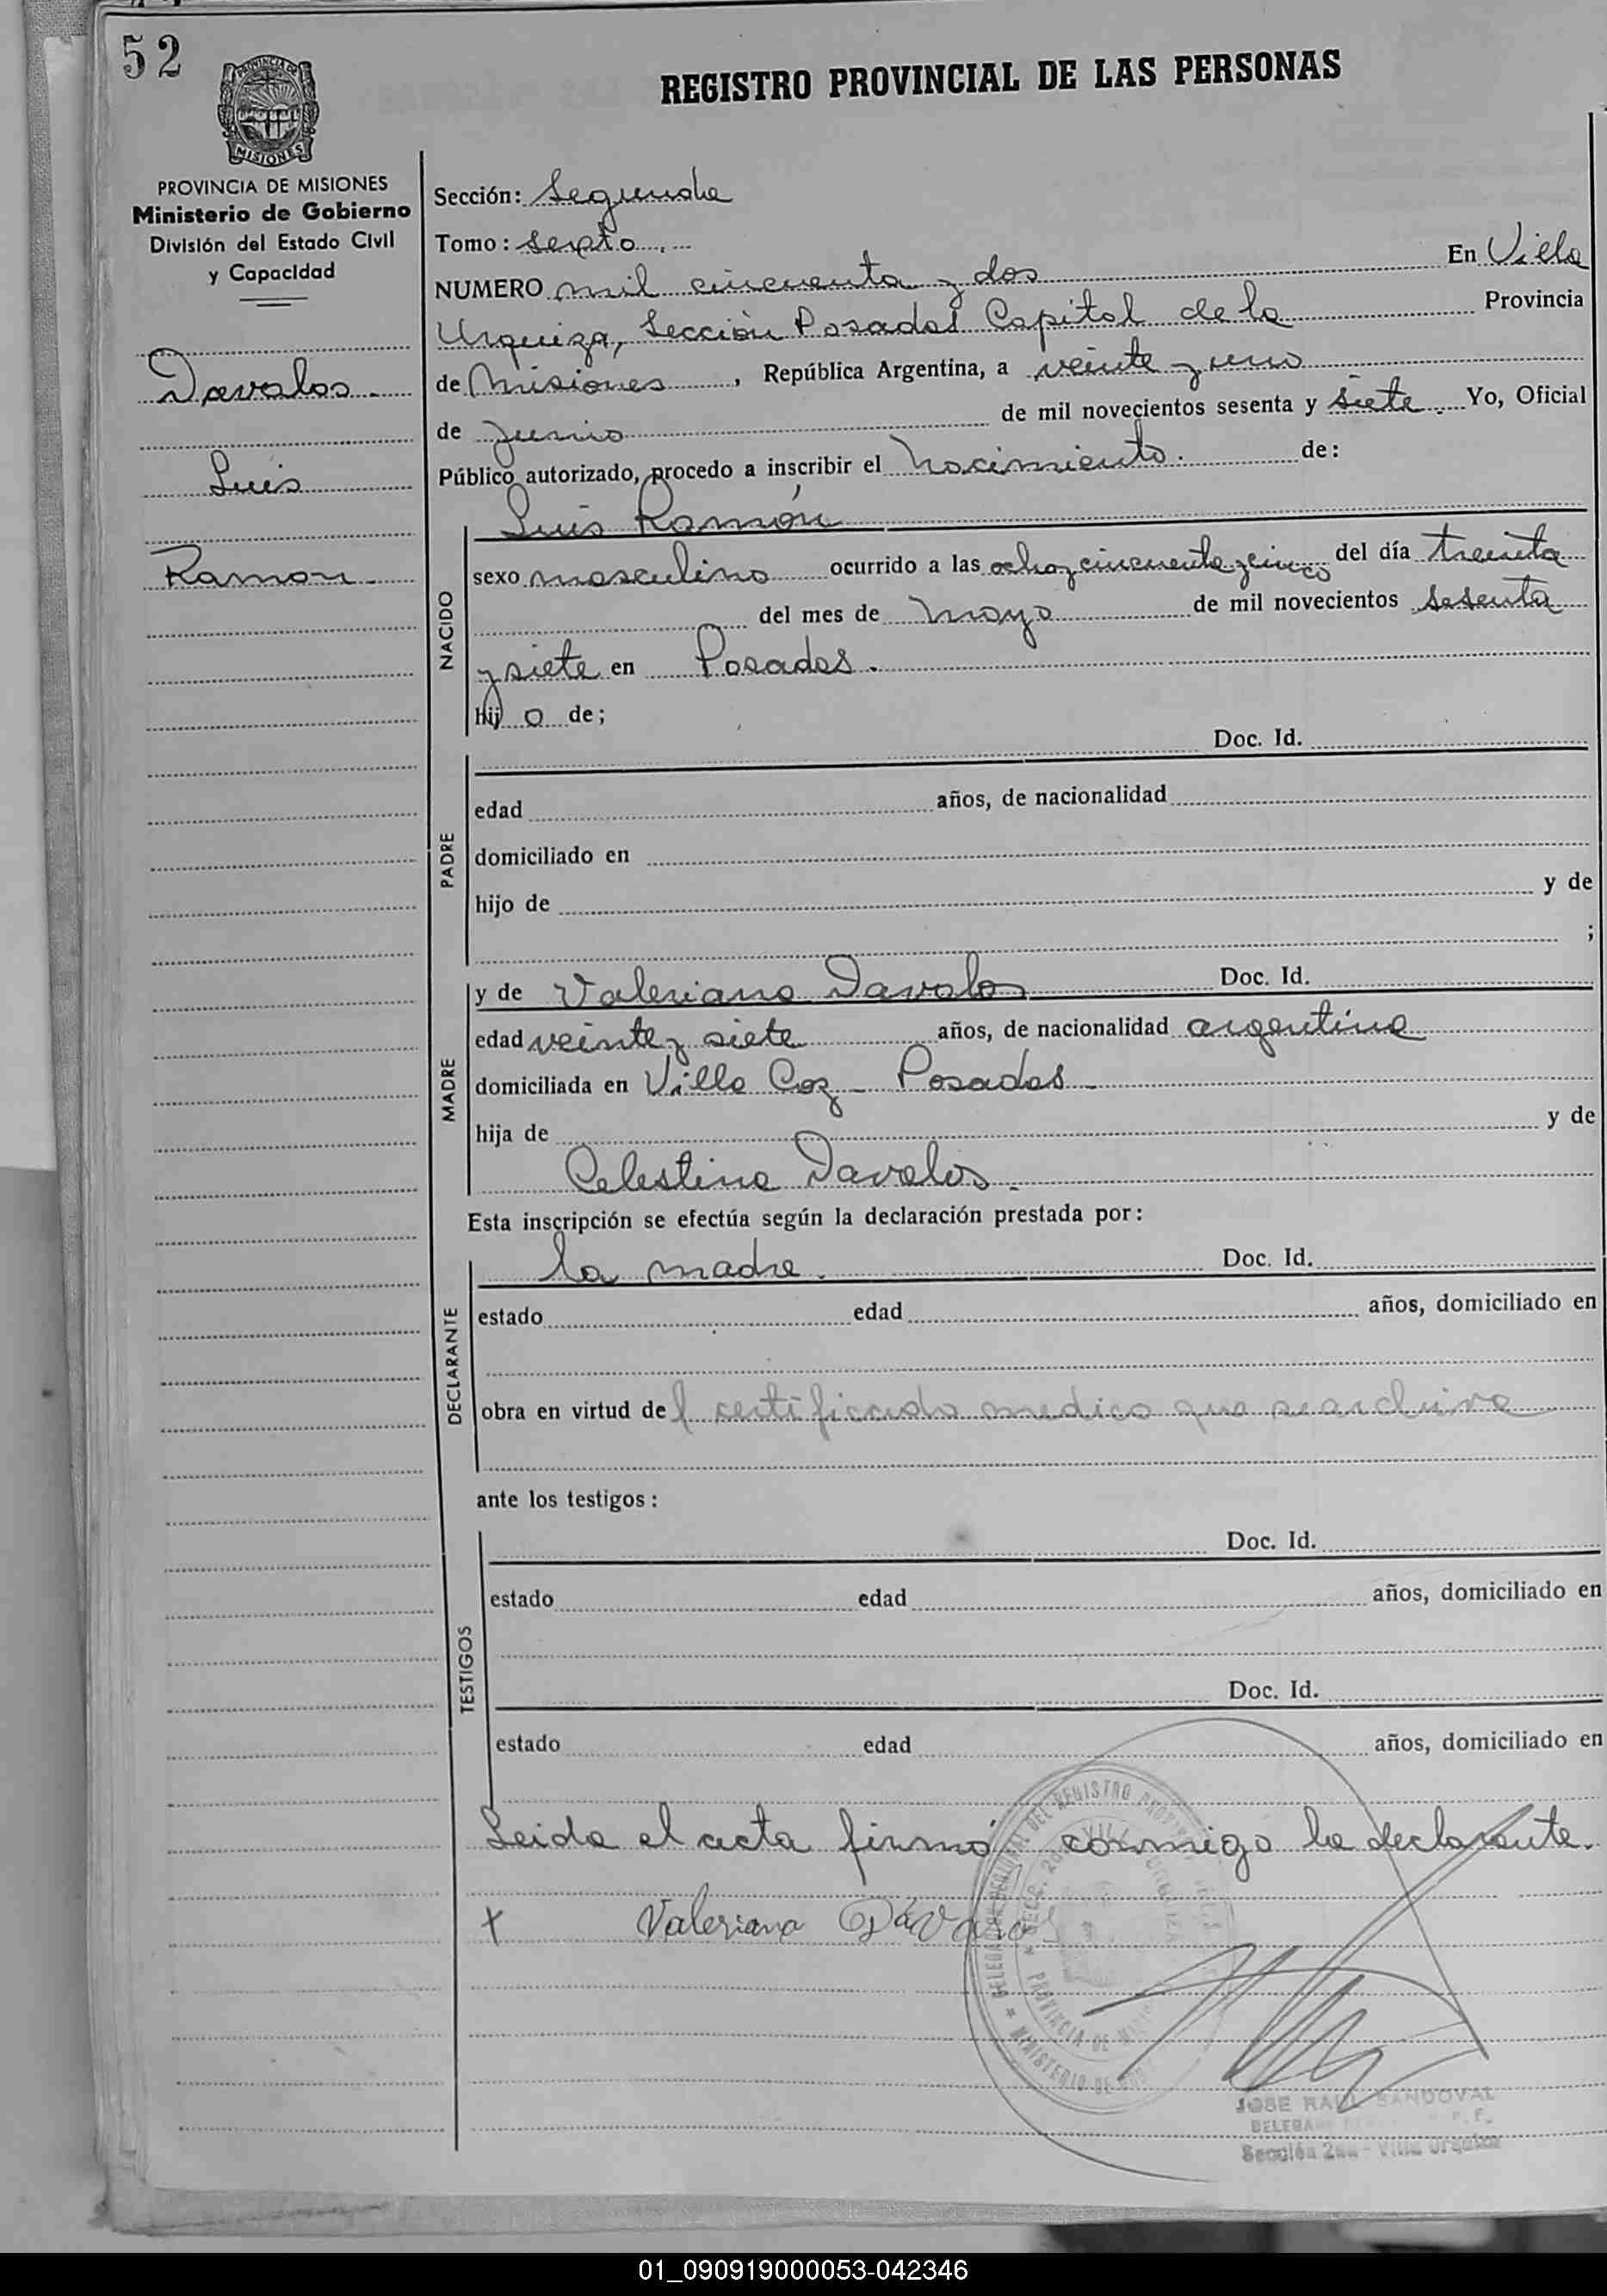 52
PROVINCIA DE
MISIONES
REGISTRO PROVINCIAL DE LAS PERSONAS
PROVINCIA DE MISIONES
Ministerio de Gobierno
División del Estado Civil
y Capacidad
Davalos.-
Luis
Ramon.-
Sección: Segunda
Tomo: sexto
NUMERO mil cincuenta y dos En Villa
Urquiza, Sección Posadas Capital de la Provincia
de Misiones, República Argentina, a veinte y uno
de Junio de mil novecientos sesenta y siete. Yo, Oficial
Público autorizado, procedo a inscribir el nacimiento. de:
NACIDO
Luis Ramón
sexo masculino ocurrido a las ocho y cincuenta y cinco del día treinta
del mes de mayo de mil novecientos sesenta
y siete en Posadas.
hij o de;
PADRE
Doc. Id.
edad años, de nacionalidad
domiciliado en
hijo de y de
;
MADRE
y de Valeriana Davalos Doc. Id.
edad veinte y siete años, de nacionalidad argentina
domiciliada en Villa Coz - Posadas -
hija de y de
Celestina Davalos.
Esta inscripción se efectúa según la declaración prestada por:
DECLARANTE
la madre. Doc. Id.
estado edad años, domiciliado en
obra en virtud del certificado medico que se archiva
ante los testigos:
TESTIGOS
Doc. Id.
estado edad años, domiciliado en
Doc. Id.
estado edad años, domiciliado en
Leida el acta firmó conmigo la declarante.
+ Valeriana Dávalos
DEL REGISTRO
PROVINCIA DE
MINISTERIO DE
JOSE RAUL SANDOVAL
Sección 2da - Villa Urquiza
01_090919000053-042346